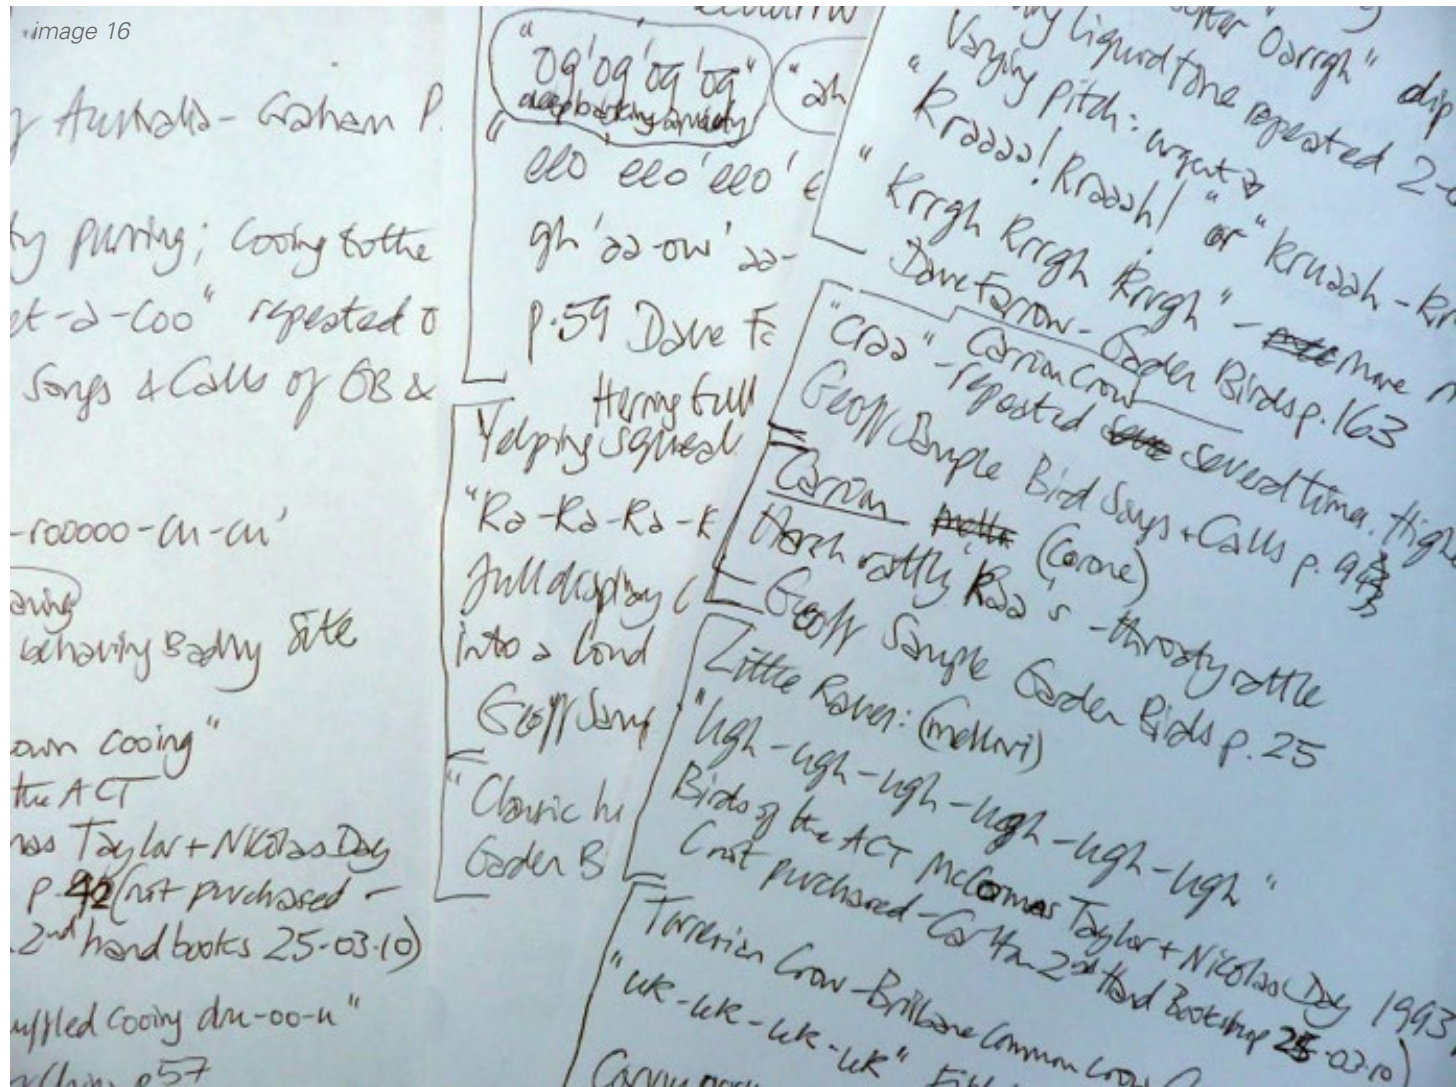 image 16
y Australia - Graham P.
ty purring; Cooing to the
et-a-Coo" repeated o
Songs & Calls of GB &
-rooooo-cu-cu'
behaving Badly Site
own cooing"
the ACT
mas Taylor + Nicolas Day
p.42 (not purchased -
2nd hand books 25-03-10)
uffled cooing dru-oo-u"
p57
"og'og'og'og"
deep barking anxiety
"ah
"eeo eeo'eeo'e
gh'aa-ow'aa-
p.59 Dave Fa
Herring Gull
Yelping squeal
"Ra-Ra-Ra-R
full display (
into a loud
Geoff Samp
"Classic
Garden B
"Oarrgh" dip
liquid tone repeated 2-
Varying pitch: urgent
"Kraaaa! Kraaah!" or "kruaah-kr
"Krrgh Krrgh Krrgh" - More
Dave Farrow - Garden Birds p.163
Carrion Crow
"Craa" - repeated several times. Highe
Geoff Sample Bird Songs + Calls p.
Carrion (Corone)
Harsh rattly Kaa's - throaty rattle
Geoff Sample Garden Birds p.25
Little Raven: (mellori)
"Ugh-ugh-ugh-ugh-ugh-ugh"
Birds of the ACT McComas Taylor + Nicolas Day 1993
(not purchased - Carlton 2nd Hand Bookshop 25-03-10)
Torresian Crow - Brisbane Common Crow
"uk-uk-uk-uk"